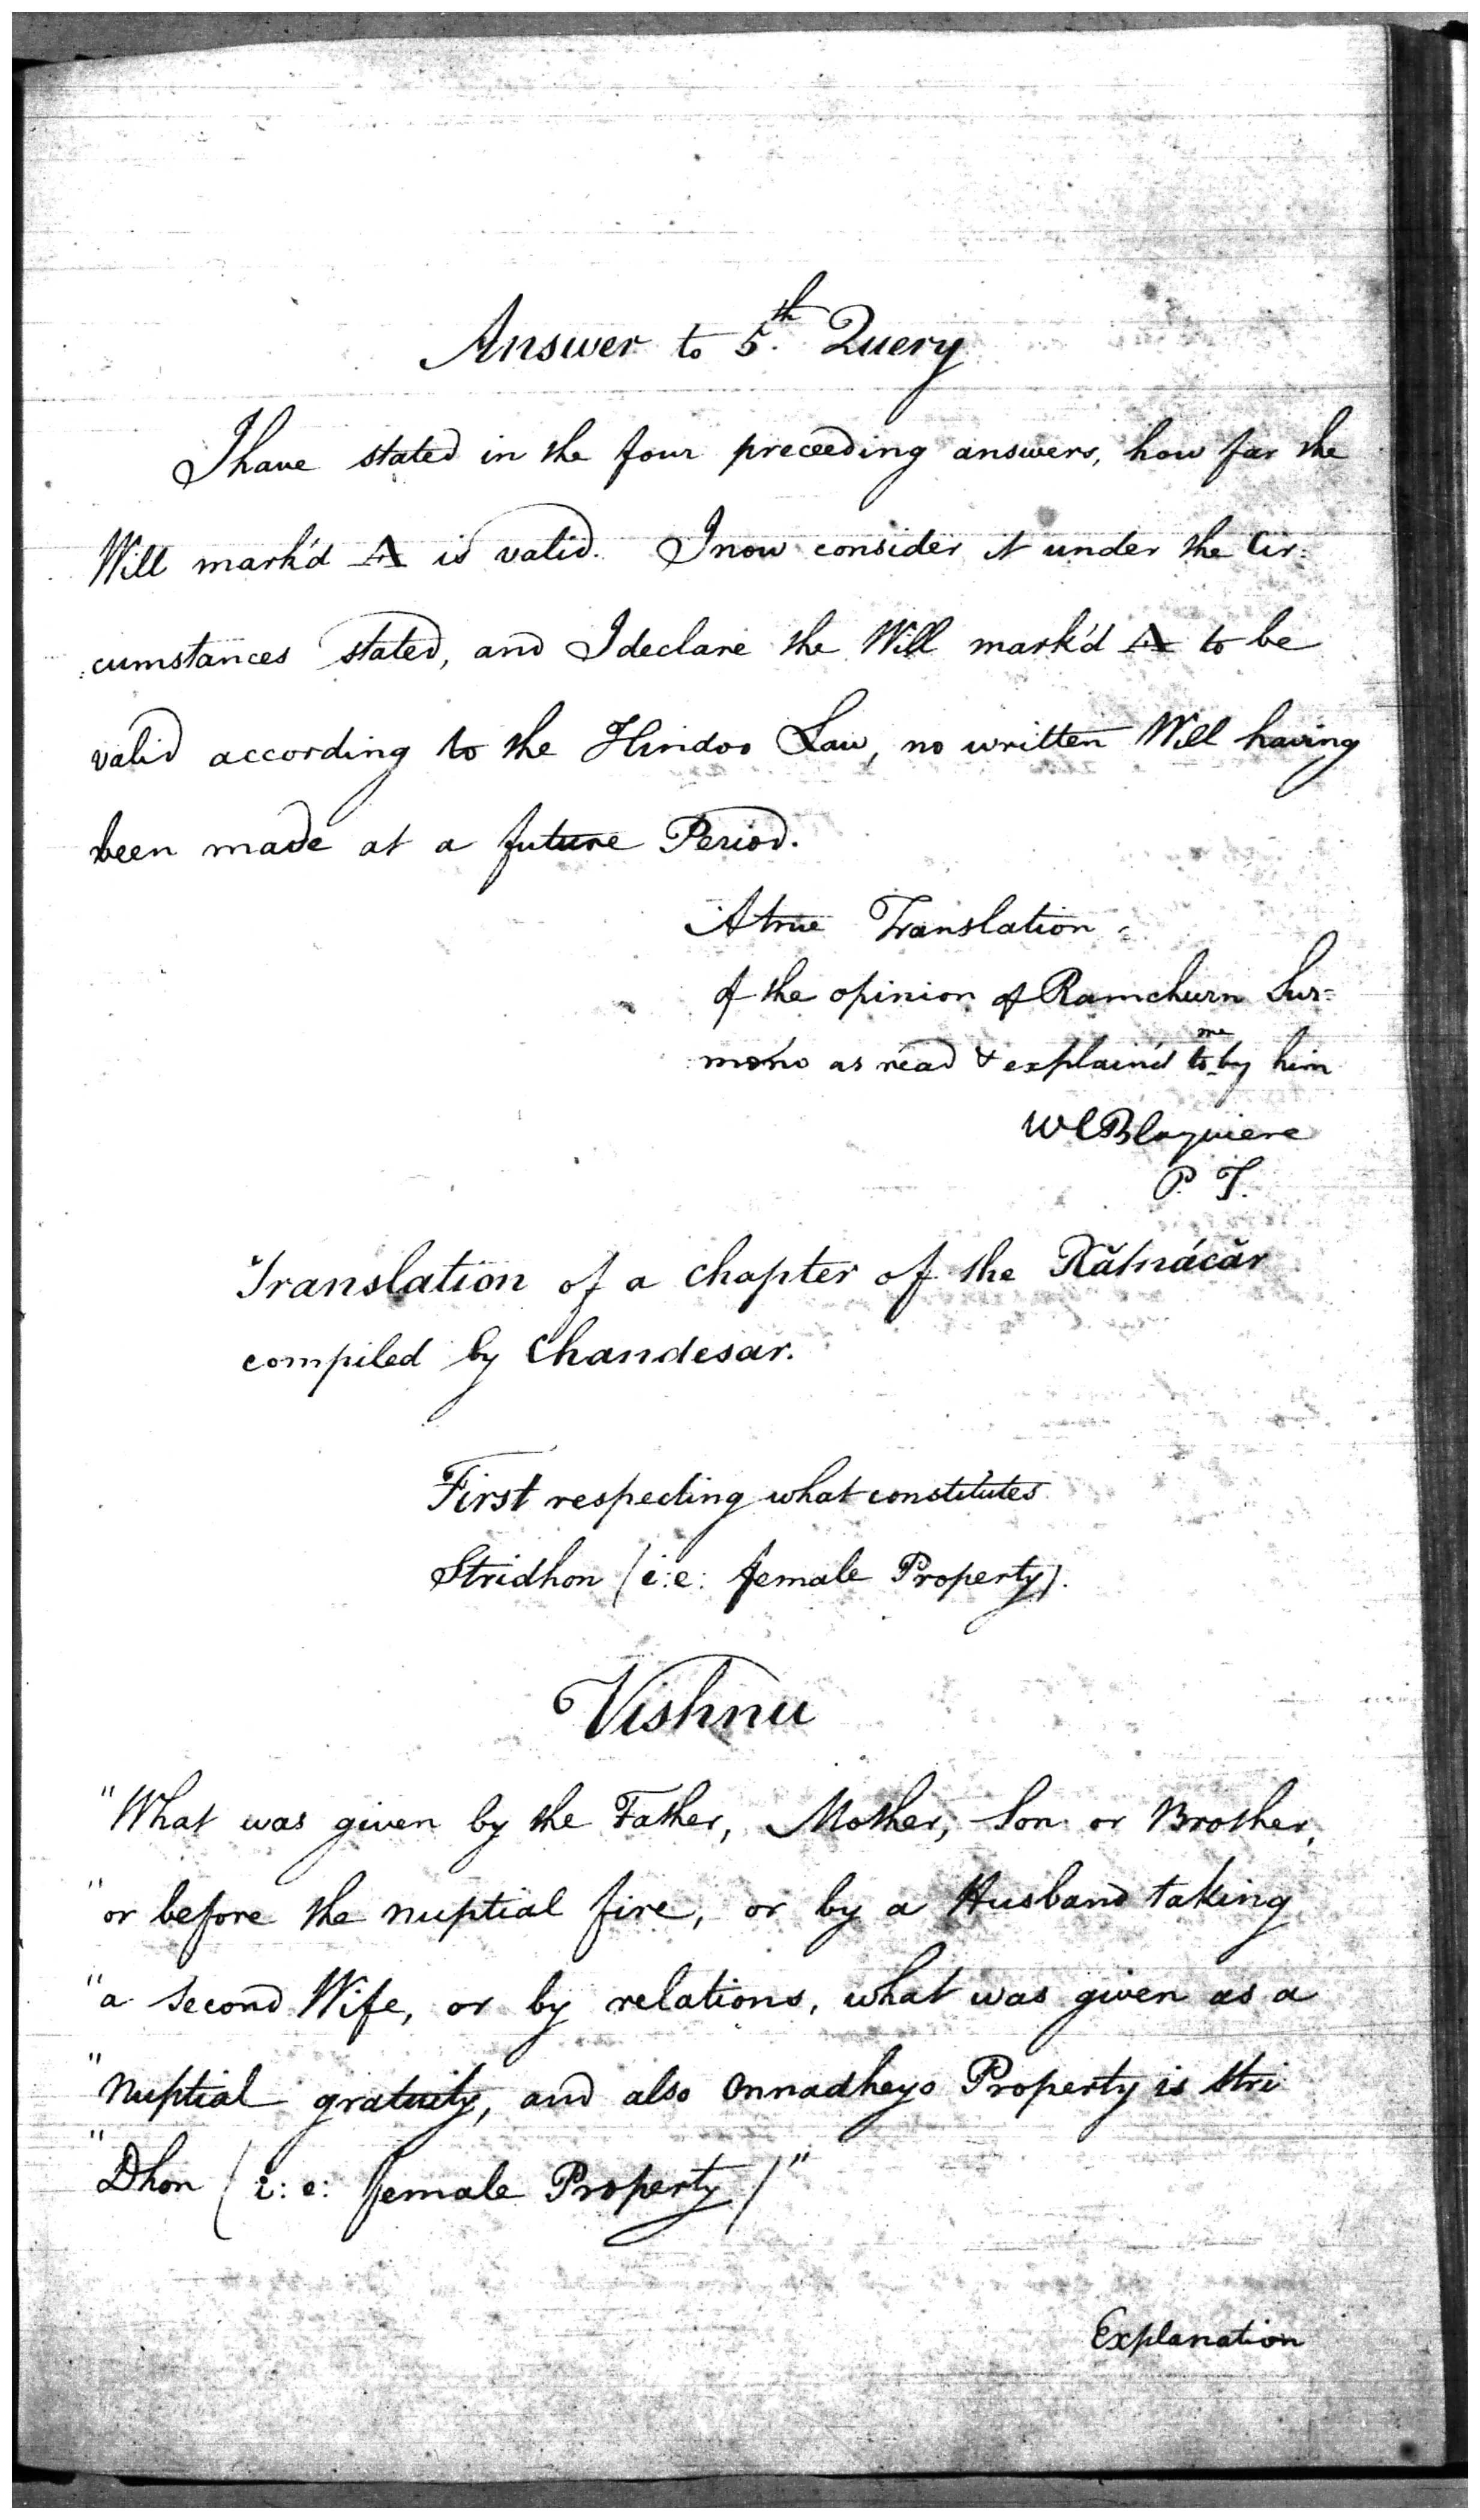 Answer to 5th Query
I have stated in the four preceeding answers, how far the
Will mark'd A is valid. I now consider it under the Cir:
:cumstances stated, and I declare the Will mark'd A to be
valid according to the Hindoo Law, no written Will having
been made at a future Period.
A true Translation
of the opinion of Ramchurn Sur=
mono as read & explain'd to me by him
W C Blaquiere
P. T.
Translation of a Chapter of the Rătnácăr
compiled by Chandesar.
First respecting what constitutes
Stridhon (i:e: female Property).
Vishnu
"What was given by the Father, Mother, Son or Brother,
"or before the nuptial fire, or by a Husband taking
"a Second Wife, or by relations, what was given as a
"Nuptial gratuity, and also Onnadheyo Property is Stri
"Dhon (i:e: female Property)"
Explanation